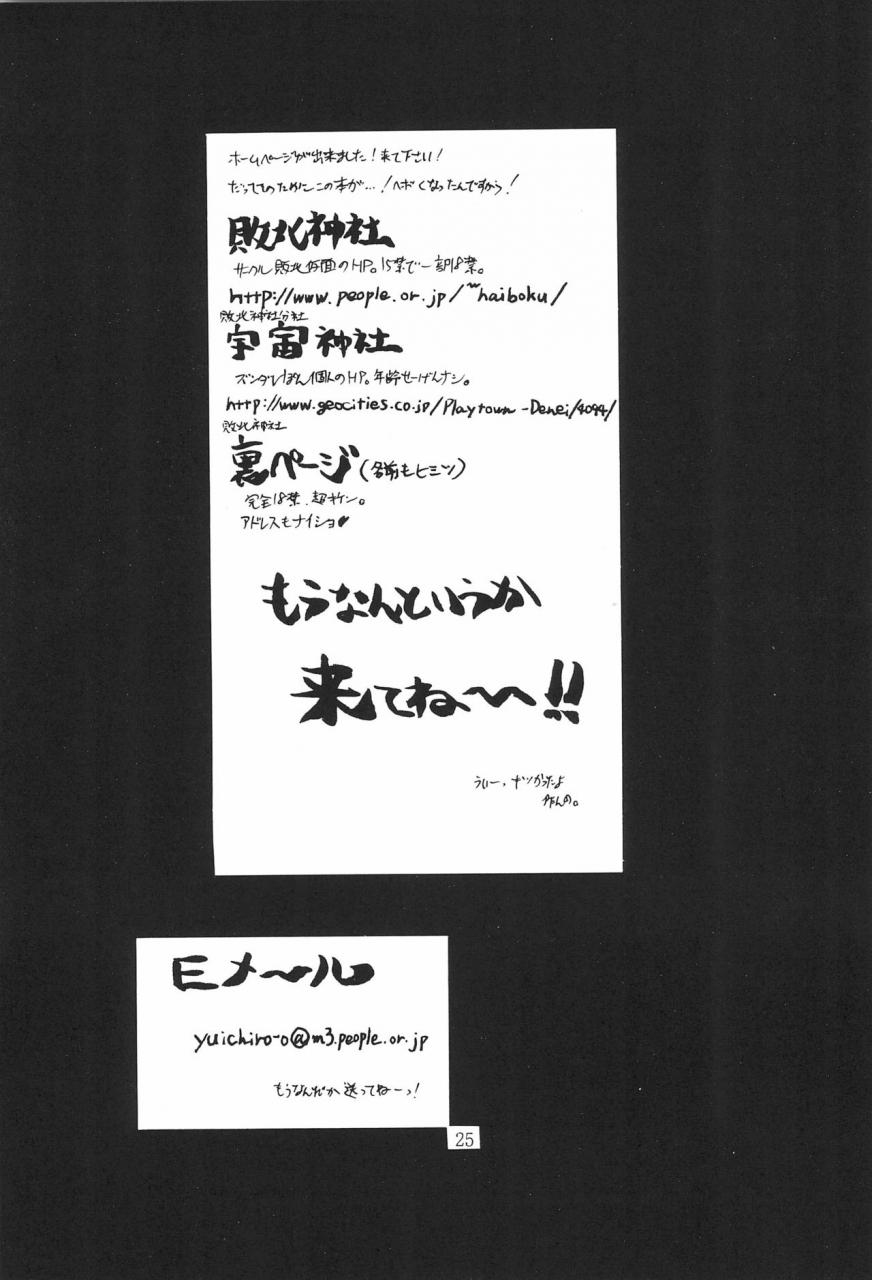 ホームページが出来ました！来て下さい！
だってそのためにこの本が…！ヘボくなったんですから！
敗北神社
サークル敗北仮面のHP。15禁で一部18禁。
http://www.people.or.jp/~haiboku/
敗北神社分社
宇宙神社
ズンダレぽん個人のHP。年齢せーげんナシ。
http://www.geocities.co.jp/Playtown-Denei/4094/
敗北神社
裏ページ（名前もヒミツ）
完全18禁、超キケン。
アドレスもナイショ♥
もうなんというか
来てね〜〜!!
うぃー、キツかったよ
作んの。
Eメ〜ル
yuichiro-o@m3.people.or.jp
もうなんだか送ってねーっ！
25